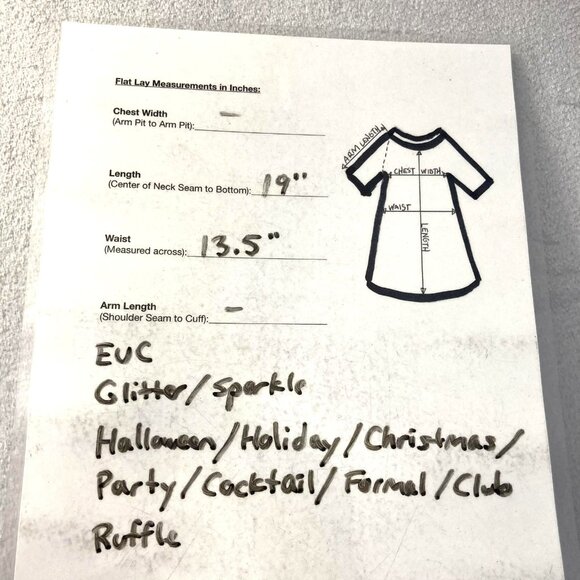 Flat Lay Measurements in Inches:
Chest Width -
(Arm Pit to Arm Pit):
Length
(Center of Neck Seam to Bottom): 19"
Waist
(Measured across): 13.5"
Arm Length -
(Shoulder Seam to Cuff):
ARM LENGTH
CHEST WIDTH
WAIST
LENGTH
EUC
Glitter/Sparkle
Halloween/Holiday/Christmas/
Party/Cocktail/Formal/Club
Ruffle